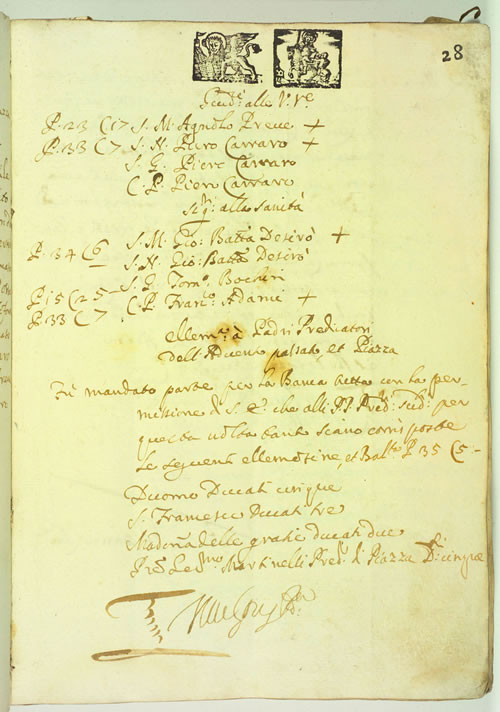 28
P. 23 C 17 S. M. Agnolo Preve +
P. 33 C 7 S. N. Piero Carraro +
S. G. Piero Carraro
C. P. Piero Carraro
alla Sanità
P. 34 C 6 S. M. Gio: Batta Desirò +
S. N. Gio: Batta Desirò
P. 15 C 25 S. G. Tom.o
P. 33 C 7 C. P. Franc.o Adami +
ellem.e à Padri Predicatori
dell'Advento passato, et Piazza
Fù mandato parte per la Banca con la per-
missione di S. E. che alli Pred.i Sud.i per
questa volta tanto siano corrisposte
le seguenti ellemosine, et Ball.e P. 35 C 5:-
Duomo Ducati cinque
S. Francesco Ducati tre
Madona delle gratie ducati due
Martinelli Pred.r di Piazza D.ti cinque